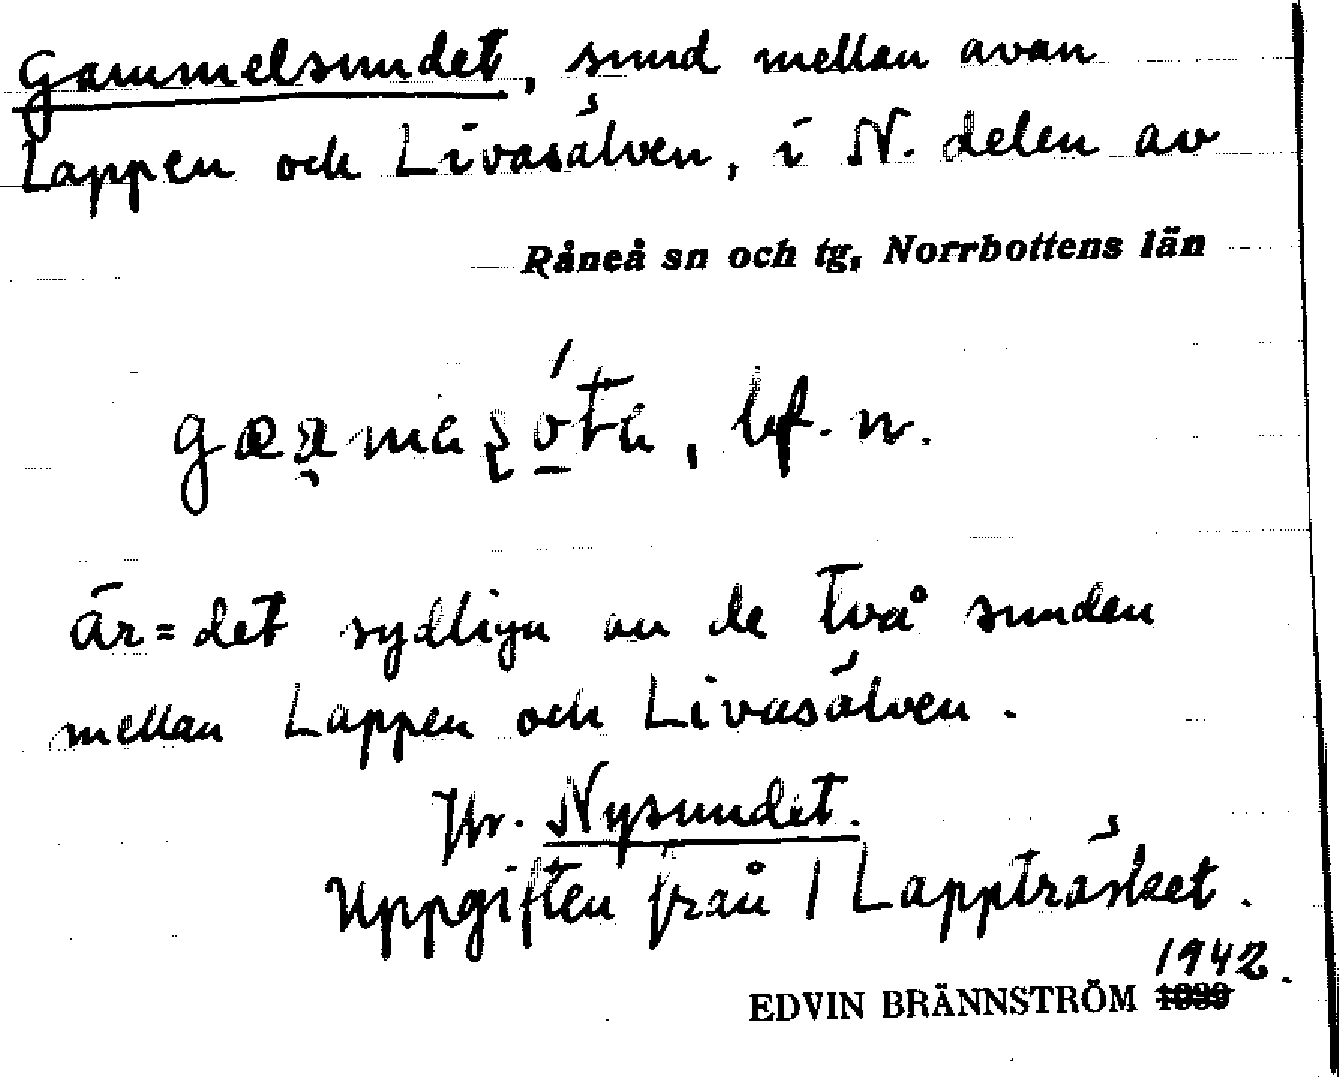 Gammelsundet, sund mellan avan
Lappen och Livasälven, i N. delen av
Råneå sn och tg, Norrbottens län
bf. n.
är = det sydliga av de två sunden
mellan Lappen och Livasälven.
Jfr. Nysundet.
Uppgiften från 1 Lappträsket.
1942.
EDVIN BRÄNNSTRÖM 1939